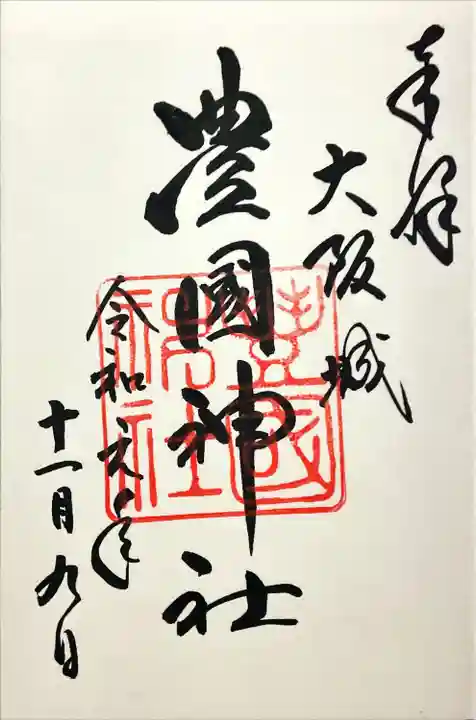 奉拝
大阪城
豊國神社
豊國神社
令和元年
十一月九日